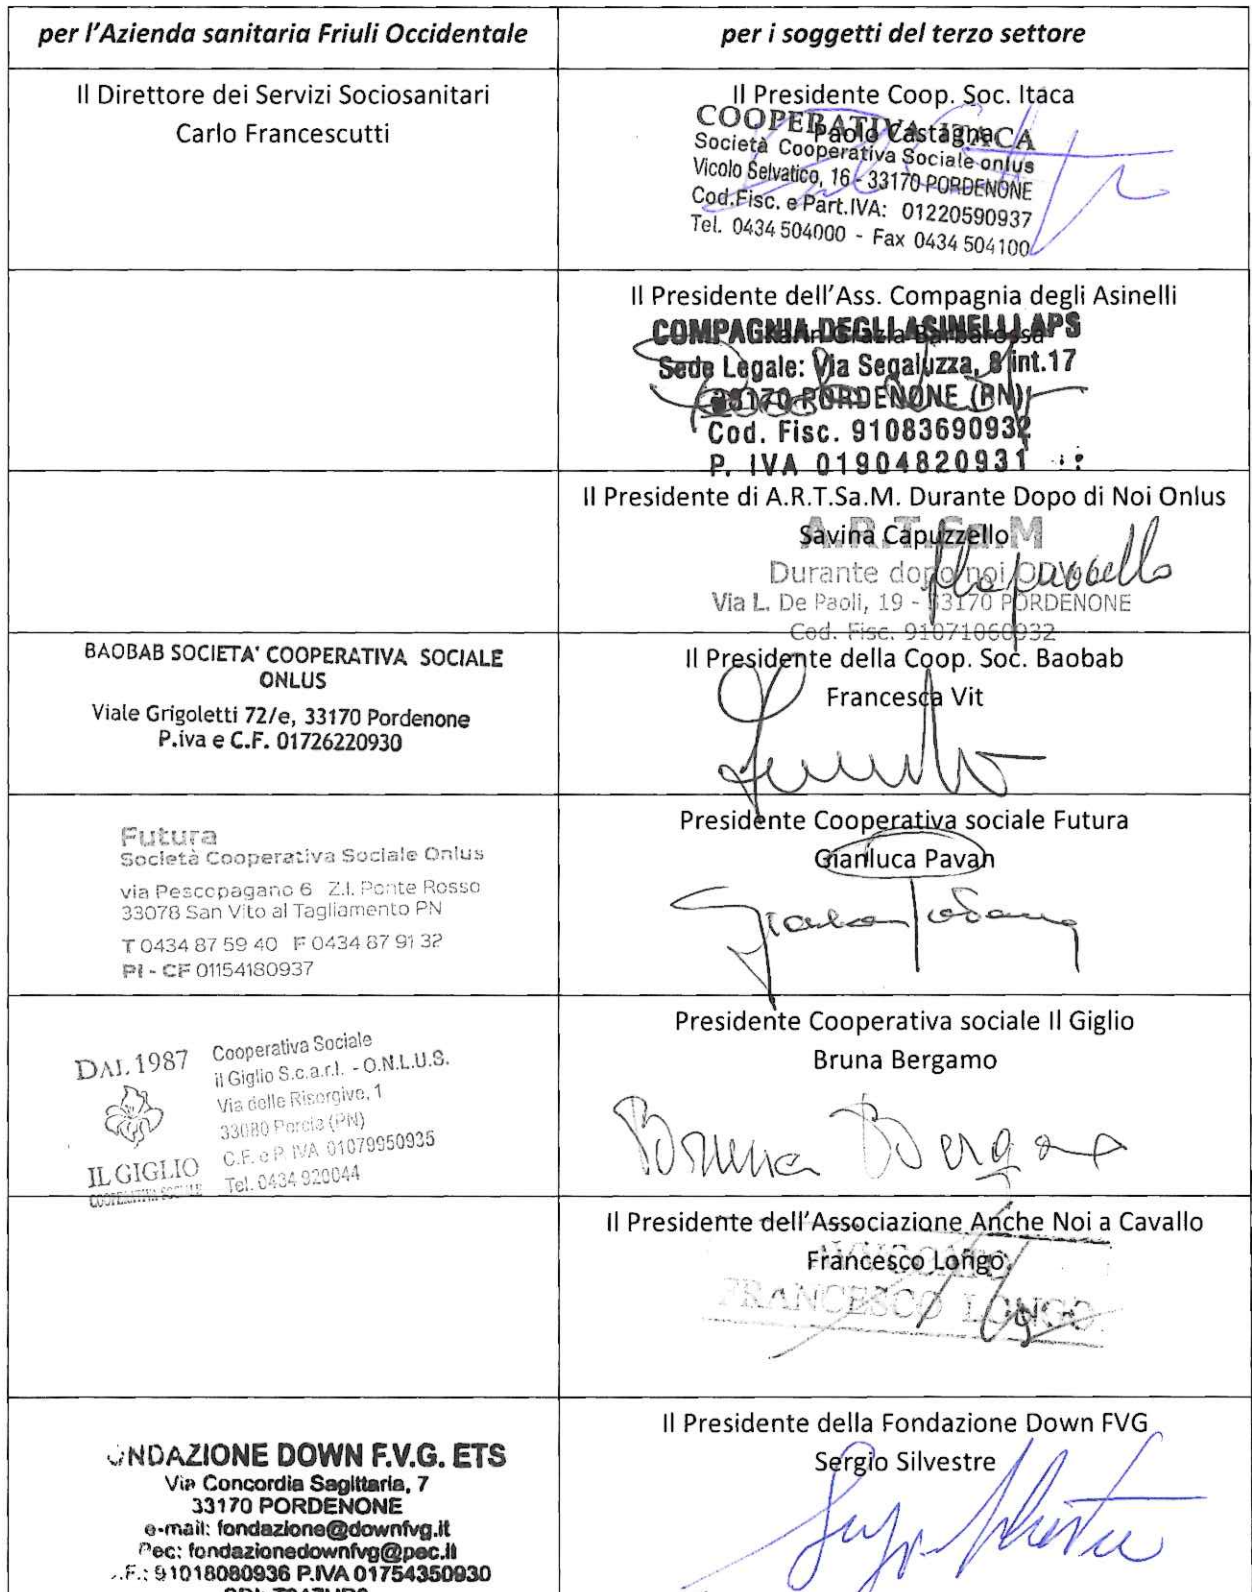 per l'Azienda sanitaria Friuli Occidentale
per i soggetti del terzo settore
Il Direttore dei Servizi Sociosanitari
Carlo Francescutti
Il Presidente Coop. Soc. Itaca
Paolo Castagna
COOPERATIVA ITACA
Società Cooperativa Sociale onlus
Vicolo Selvatico, 16 - 33170 PORDENONE
Cod.Fisc. e Part.IVA: 01220590937
Tel. 0434 504000 - Fax 0434 504100
Il Presidente dell'Ass. Compagnia degli Asinelli
Karin Grazia Barbarossa
COMPAGNIA DEGLI ASINELLI APS
Sede Legale: Via Segaluzza, 8 int.17
33170 PORDENONE (PN)
Cod. Fisc. 91083690932
P. IVA 01904820931
Il Presidente di A.R.T.Sa.M. Durante Dopo di Noi Onlus
Savina Capuzzello
A.R.T.Sa.M
Durante dopo noi
Via L. De Paoli, 19 - 33170 PORDENONE
Cod. Fisc. 91071060932
BAOBAB SOCIETA' COOPERATIVA SOCIALE
ONLUS
Viale Grigoletti 72/e, 33170 Pordenone
P.iva e C.F. 01726220930
Il Presidente della Coop. Soc. Baobab
Francesca Vit
Futura
Società Cooperativa Sociale Onlus
via Pescopagano 6 Z.I. Ponte Rosso
33078 San Vito al Tagliamento PN
T 0434 87 59 40 F 0434 87 91 32
PI - CF 01154180937
Presidente Cooperativa sociale Futura
Gianluca Pavan
DAL 1987
IL GIGLIO
COOPERATIVA SOCIALE
Cooperativa Sociale
il Giglio S.c.a.r.l. - O.N.L.U.S.
Via delle Risorgive, 1
33080 Porcia (PN)
C.F. e P. IVA 01079950935
Tel. 0434 920044
Presidente Cooperativa sociale Il Giglio
Bruna Bergamo
Bruna Bergamo
Il Presidente dell'Associazione Anche Noi a Cavallo
Francesco Longo
FRANCESCO LONGO
ONDAZIONE DOWN F.V.G. ETS
Via Concordia Sagittaria, 7
33170 PORDENONE
e-mail: fondazione@downfvg.it
Pec: fondazionedownfvg@pec.it
.F.: 91018080936 P.IVA 01754350930
Il Presidente della Fondazione Down FVG
Sergio Silvestre